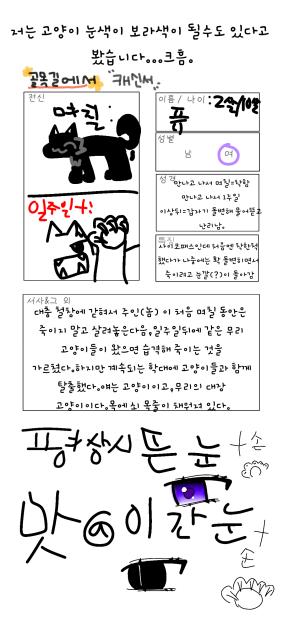 저는 고양이 눈색이 보라색이 될수도 있다고
봤습니다...크흠.
골목길에서 "캐신서"
전신
며칠:
일주일+:
이름 / 나이 : 2살/10살
픍
성별
남 여
성격
만나고 나서 며칠=착함
만나고 나서 1주일
이상뒤=갑자기 돌변해 물어뜯고
난리남.
특징
사이코패스인데 처음엔 착한척
했다가 나중에는 확 돌변하면서
죽이려고 눈깔(?)이 돌아감
서사&그 외
대충 철창에 갇혀서 주인(놈) 이 처음 며칠 동안은
죽이지 말고 살려놓은다음,일주일뒤에 같은 무리
고양이들이 왔으면 습격해 죽이는 것을
가르쳤다.하지만 계속되는 학대에 고양이들과 함께
탈출했다.얘는 고양이이고,무리의 대장
고양이이다.목에 쇠 목줄이 채워져 있다.
평상시 뜬 눈 + 손
맛이 간 눈 + 손